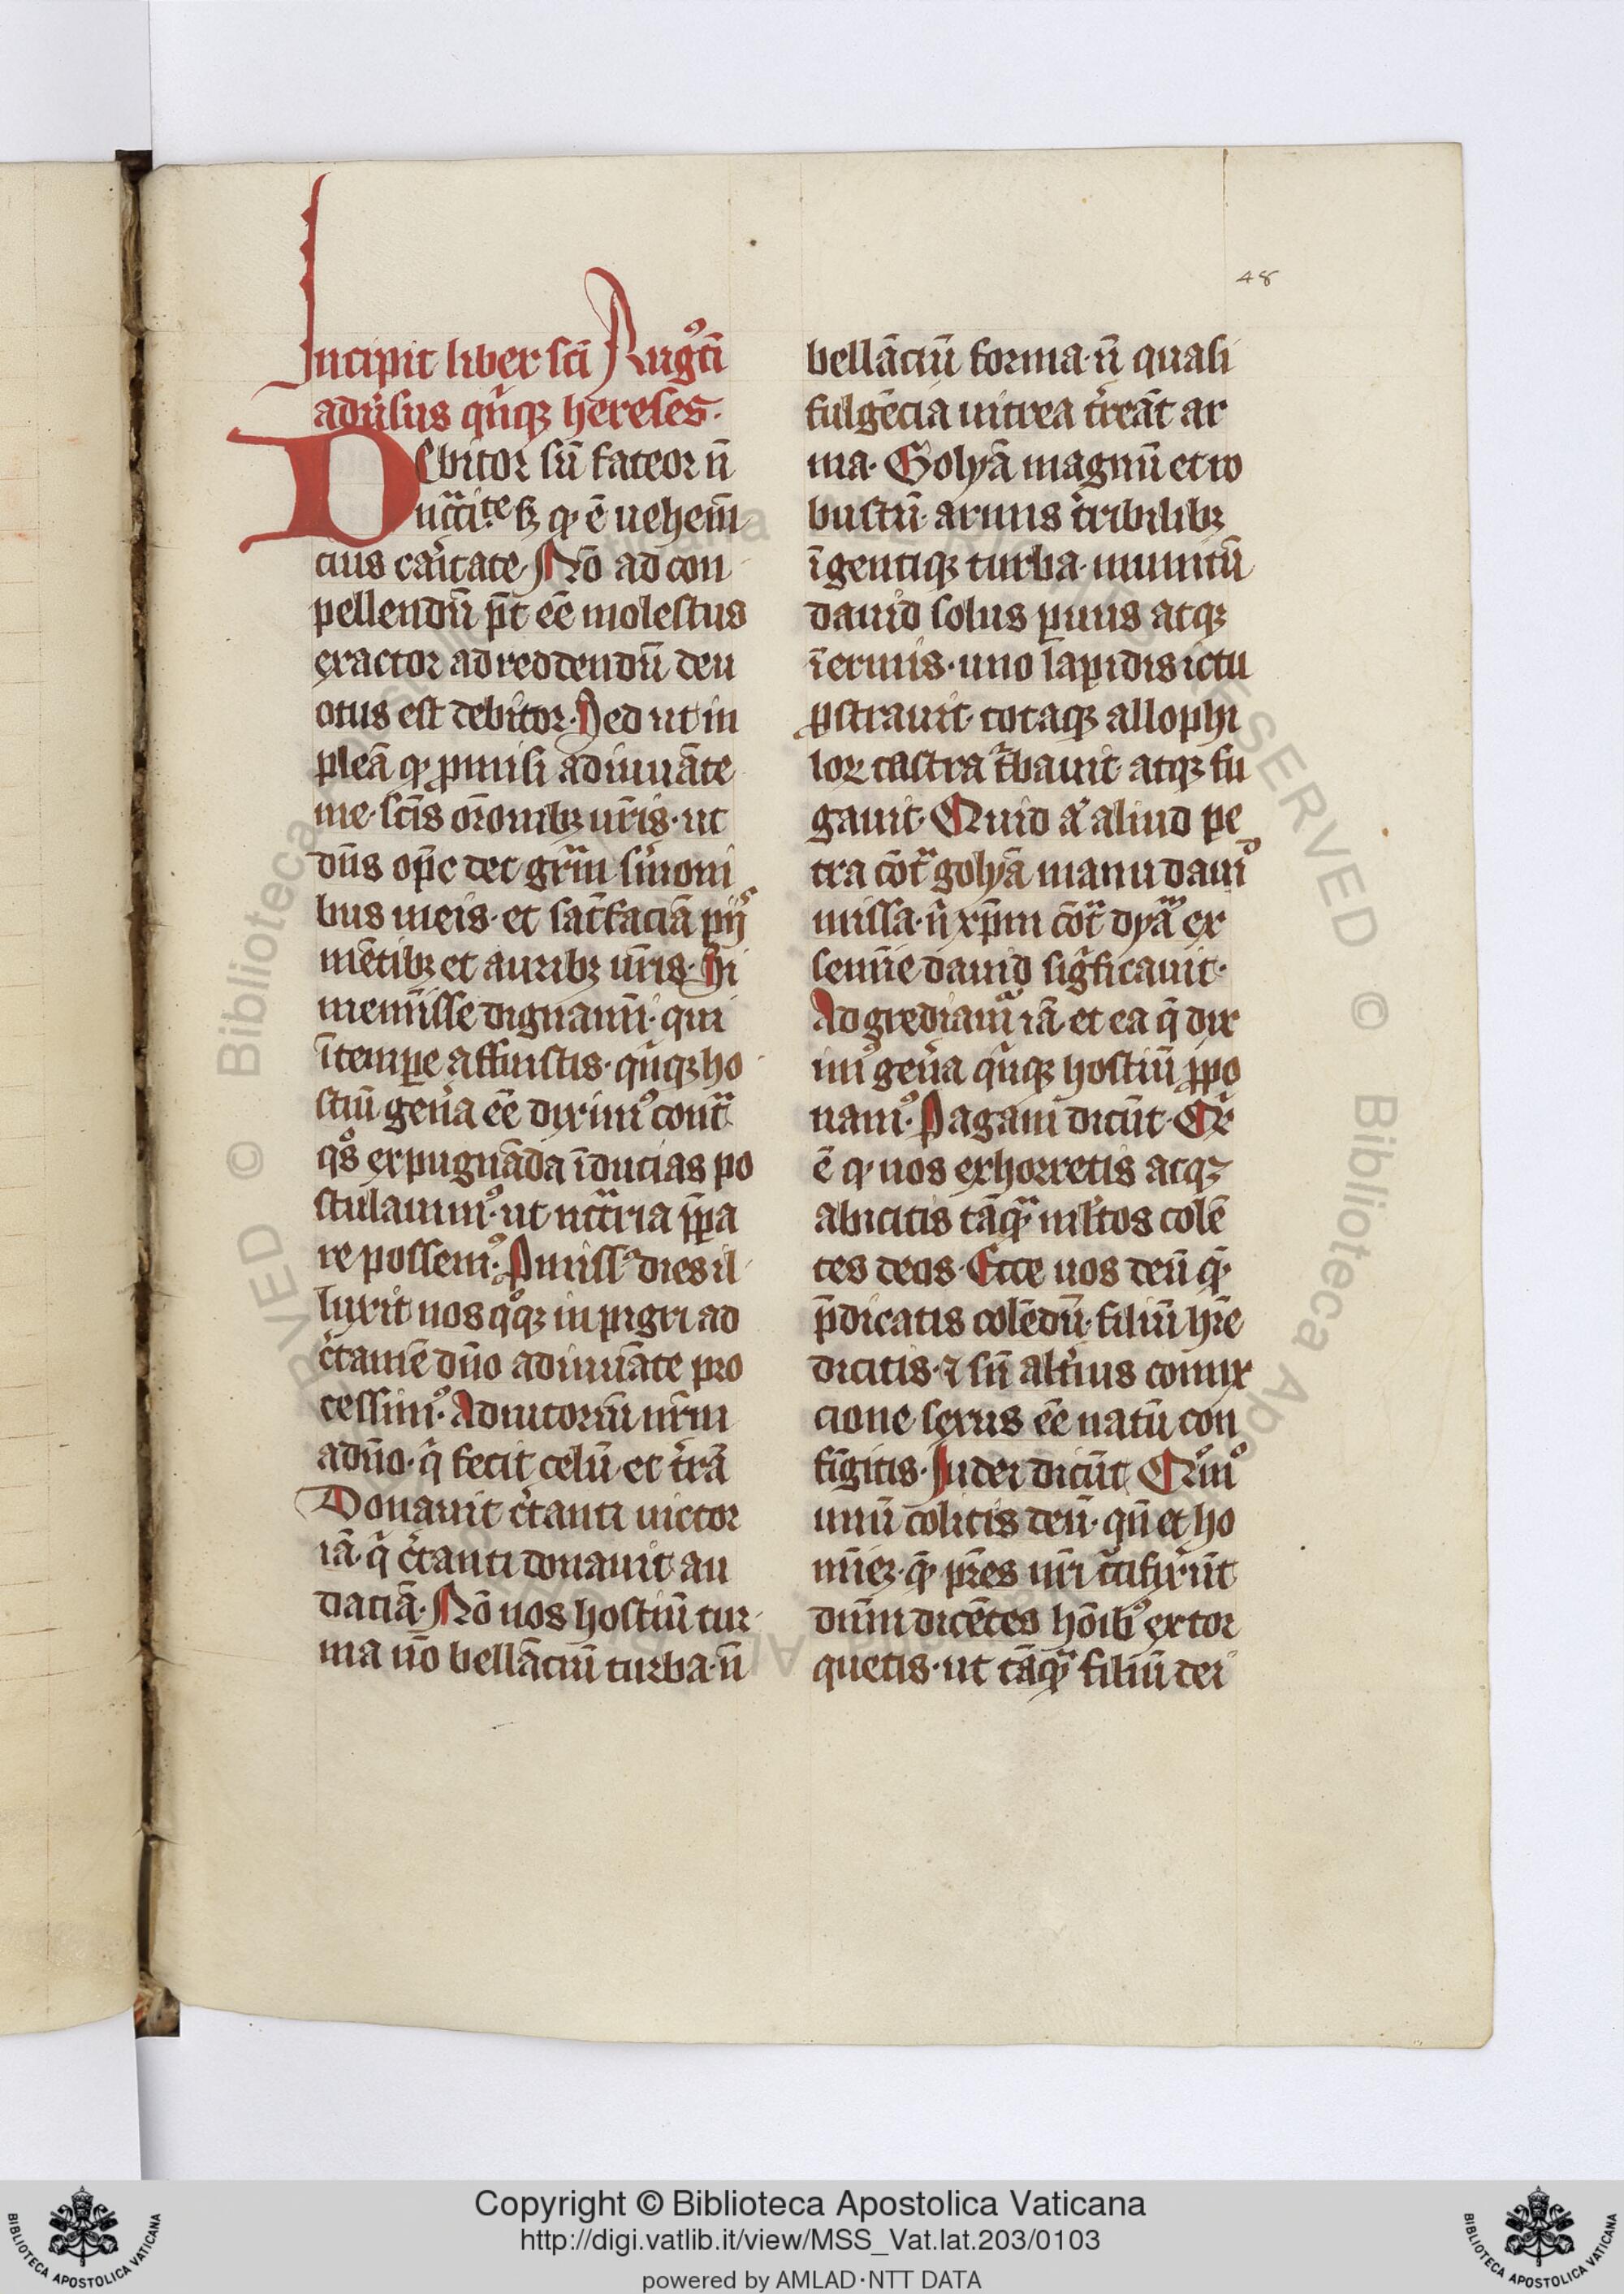 48
Incipit liber sc̄i Augᵒti
adu̾sus qͥnqꝫ hereses·
DEbitor sū fateor n̄
nccͣiteͭ sꝫ qͩ ē uehem̄
cius cāitate· Nō ad con
pellendū pt̄ eē molestus
exactor ad reddendū deu
otus est debitor· Sed ut in
pleā qͩ ꝓmisi adiuuāte
me· sc̄is or̄onibꝫ ur̄is· ut
dn̄s op̄c det gr̄am sm̄oni
bus meis· et sat̄faciā pijˢ
mētibꝫ et auribꝫ ur̄is· Si
memīisse dignamī· qui
ī temꝑe affuistis· qͥnqꝫ ho
stiū gen̾a eē dixim᷒ contͣ
qͦs expugnāda īducias po
stulauim᷒· ut nccͣria p̄pa
re possem᷒· Ꝓmissᵒ dies il
luxit nos qͦqꝫ inpigri ad
c̾tamē dn̄o adiuuāte pro
cessim᷒· Adiutoriū nr̄m
a dn̄o· qͥ fecit celū et t̾rā
Donauit c̾tanti uictor
iā· qͥ c̾tanti donauit au
daciā· Nō nos hostiū tur
ma nō bellāciū turba· n̄
bellāciū forma· n̄ quasi
fulgēcia uitrea t̾reāt ar
ma· Golyā magnū et ro
bustū armis t̾ribilibꝫ
īgentiqꝫ turba· munitū
dauid solus ꝑuus atqꝫ
īermis· uno lapidis ictu
ꝓstrauit· totaqꝫ allophi
loꝝ castra tͬbauit atqꝫ fu
gauit· Quid aͣ aliud pe
tra cōtͣ golyā manu dauiᵈ
missa· n̄ xp̄m cōtͣ dyaᵐ ex
semīe dauid sigͥficauit·
Adgrediamͬ iā et ea q̄ dix
im᷒ gen̾a qͥnqꝫ hostiū ꝓpo
nam᷒· Pagani dicūt· Cͬ
ē qͩ nos exhorretis atqꝫ
abicitis tāqͣ ml̾tos colē
tes deos· Ecce uos deū qͩ
p̄dicatis colēdū· filiū hr̄e
dicitis· ⁊ sn̄ alt̾ius comix
cione sexus eē natū con
fīgitis· Iudei dicūt Qͦm᷒
unū colitis deū· qn̄ et ho
mīeꝫ· qͩ pr̄es nr̄i c̾cifix̾unt
dn̄m dicētes hōibᷤ extor
quetis· ut tāqͣ filiū dei
Copyright © Biblioteca Apostolica Vaticana
http://digi.vatlib.it/view/MSS_Vat.lat.203/0103
powered by AMLAD·NTT DATA
BIBLIOTECA APOSTOLICA VATICANA
BIBLIOTECA APOSTOLICA VATICANA